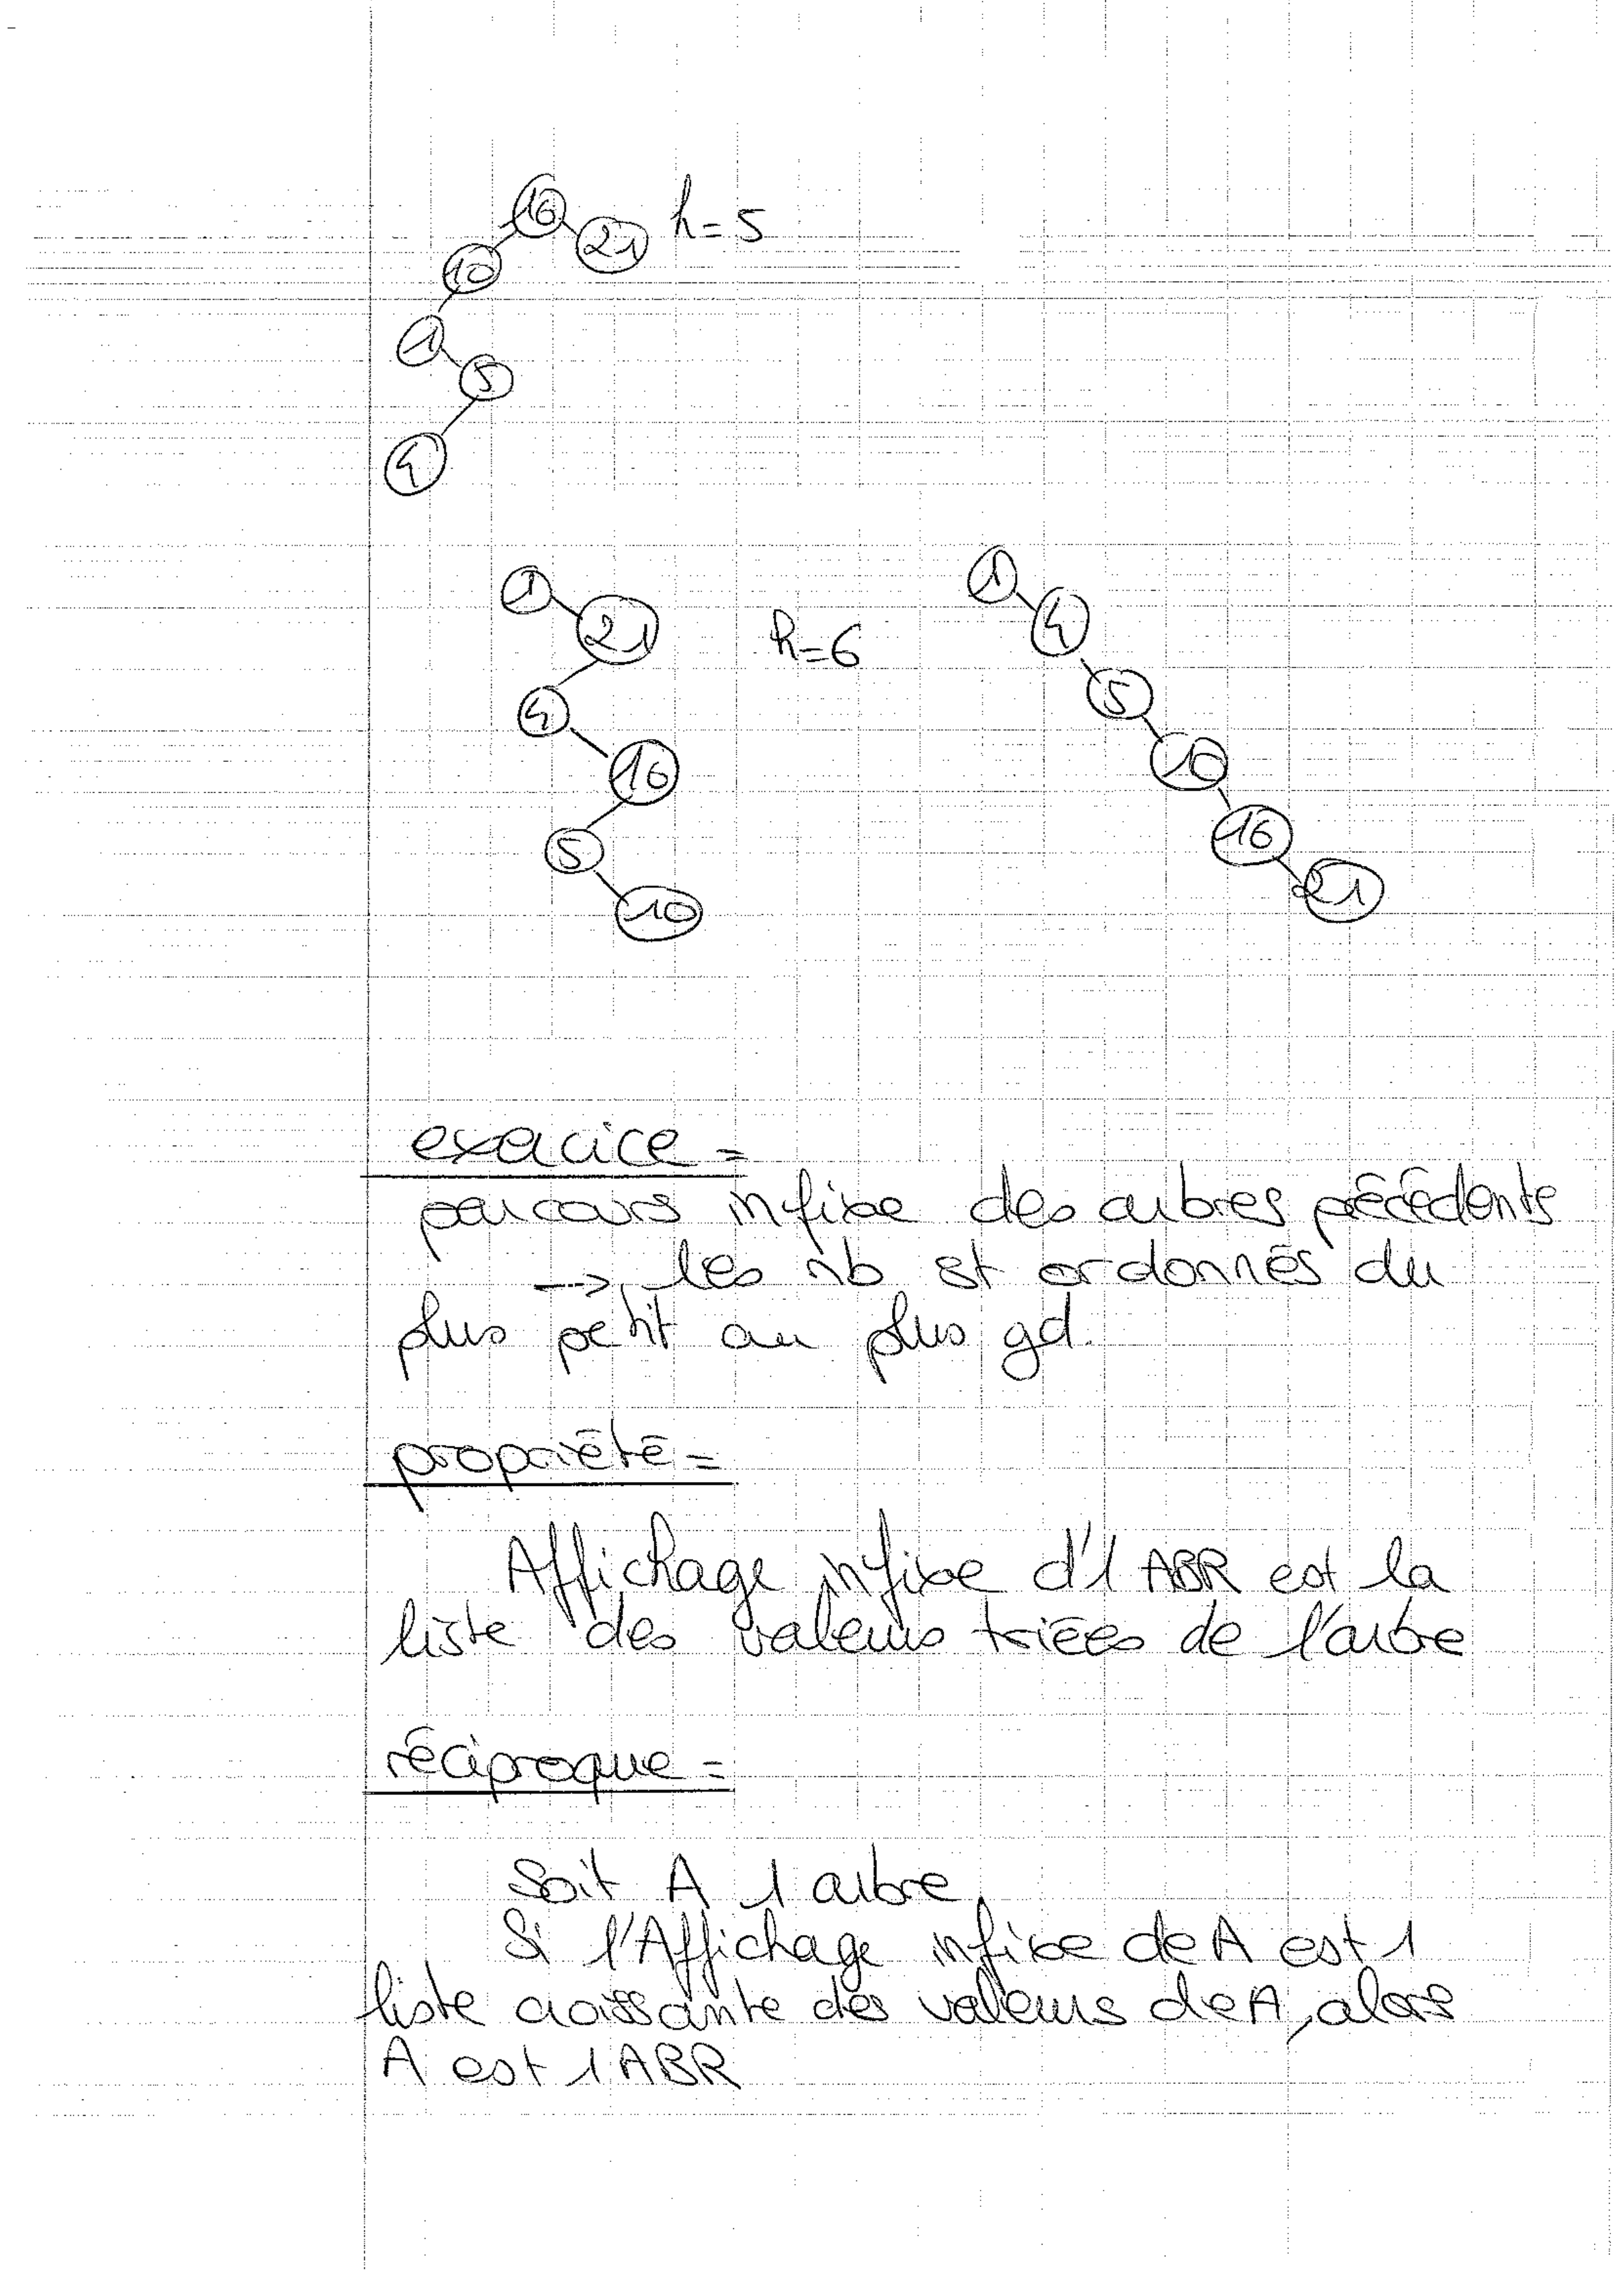 16 21 h=5
10
1
5
4
1 21 h=6
4
16
5
10
1
4
5
10
16
21
exercice =
parcours infixe des arbres précédents
--> les nb st ordonnés du
plus petit au plus gd.
propriété =
Affichage infixe d'1 ABR est la
liste des valeurs triées de l'arbre
réciproque =
Soit A 1 arbre,
Si l'Affichage infixe de A est 1
liste croissante des valeurs de A, alors
A est 1 ABR